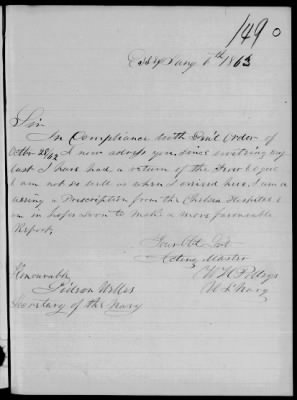 149
6th 1863
Sir
In Compliance with Genl Order of
Octbr 28/62 I now address you, since writing my
last I have had a return of the Fever & ague
I am not so well as when I arrived here. I am a
useing a Prescription from the Chelsea Hospital &
am in hopes soon to make a more favourable
Report,
Your Obt Svt
Acting Master
Honourable W H
Gideon Welles U S Navy
Secretary of the Navy